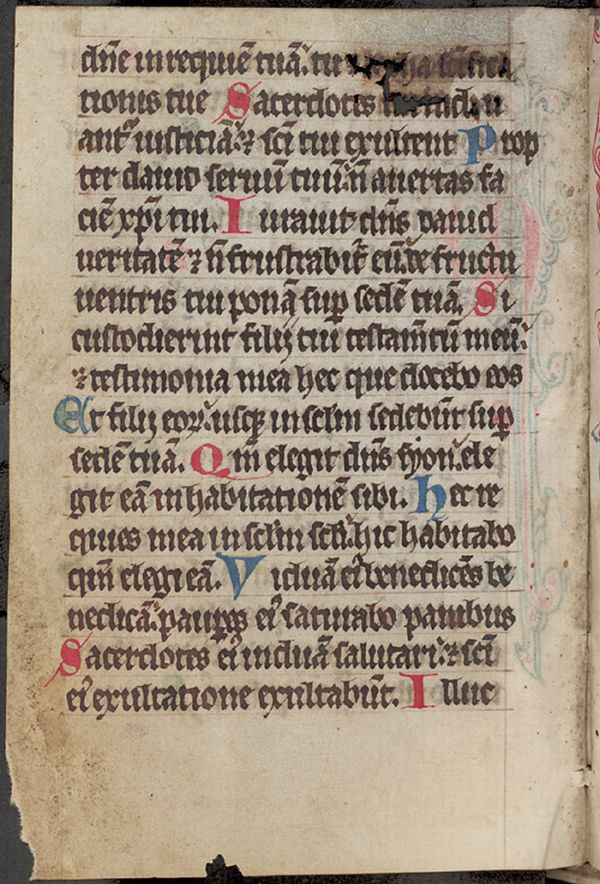 dn̄e in requiē tuā. tu
tionis tue Sacerdotes
ant̄ iusticiā. ⁊ sc̄i tui exultent Prop
ter dauid seruū tuū. n̄ auertas fa
ciē xp̄i tui. Iurauit dn̄s dauid
ueritatē ⁊ n̄ frustrabit᷑ eū. de fructu
uentris tui ponā sup̱ sedē tuā. Si
custodierint filij tui testam̄tū meū.
⁊ testimonia mea hec que docebo eos
Et filij eoꝝ. usqꝫ in sclm̄ sedebūt sup̱
sedē tuā. Qm̄ elegit dn̄s syon. ele
git eā in habitationē sibi. Hec re
quies mea in sclm̄ scl̄i. hic habitabo
qm̄ elegi eā. Viduā eiꝰ benedicēs be
nedicā. paup̱es eiꝰ saturabo panibus
Sacerdotes eiꝰ induā salutari. ⁊ sc̄i
eiꝰ exultatione exultabūt. Illuc